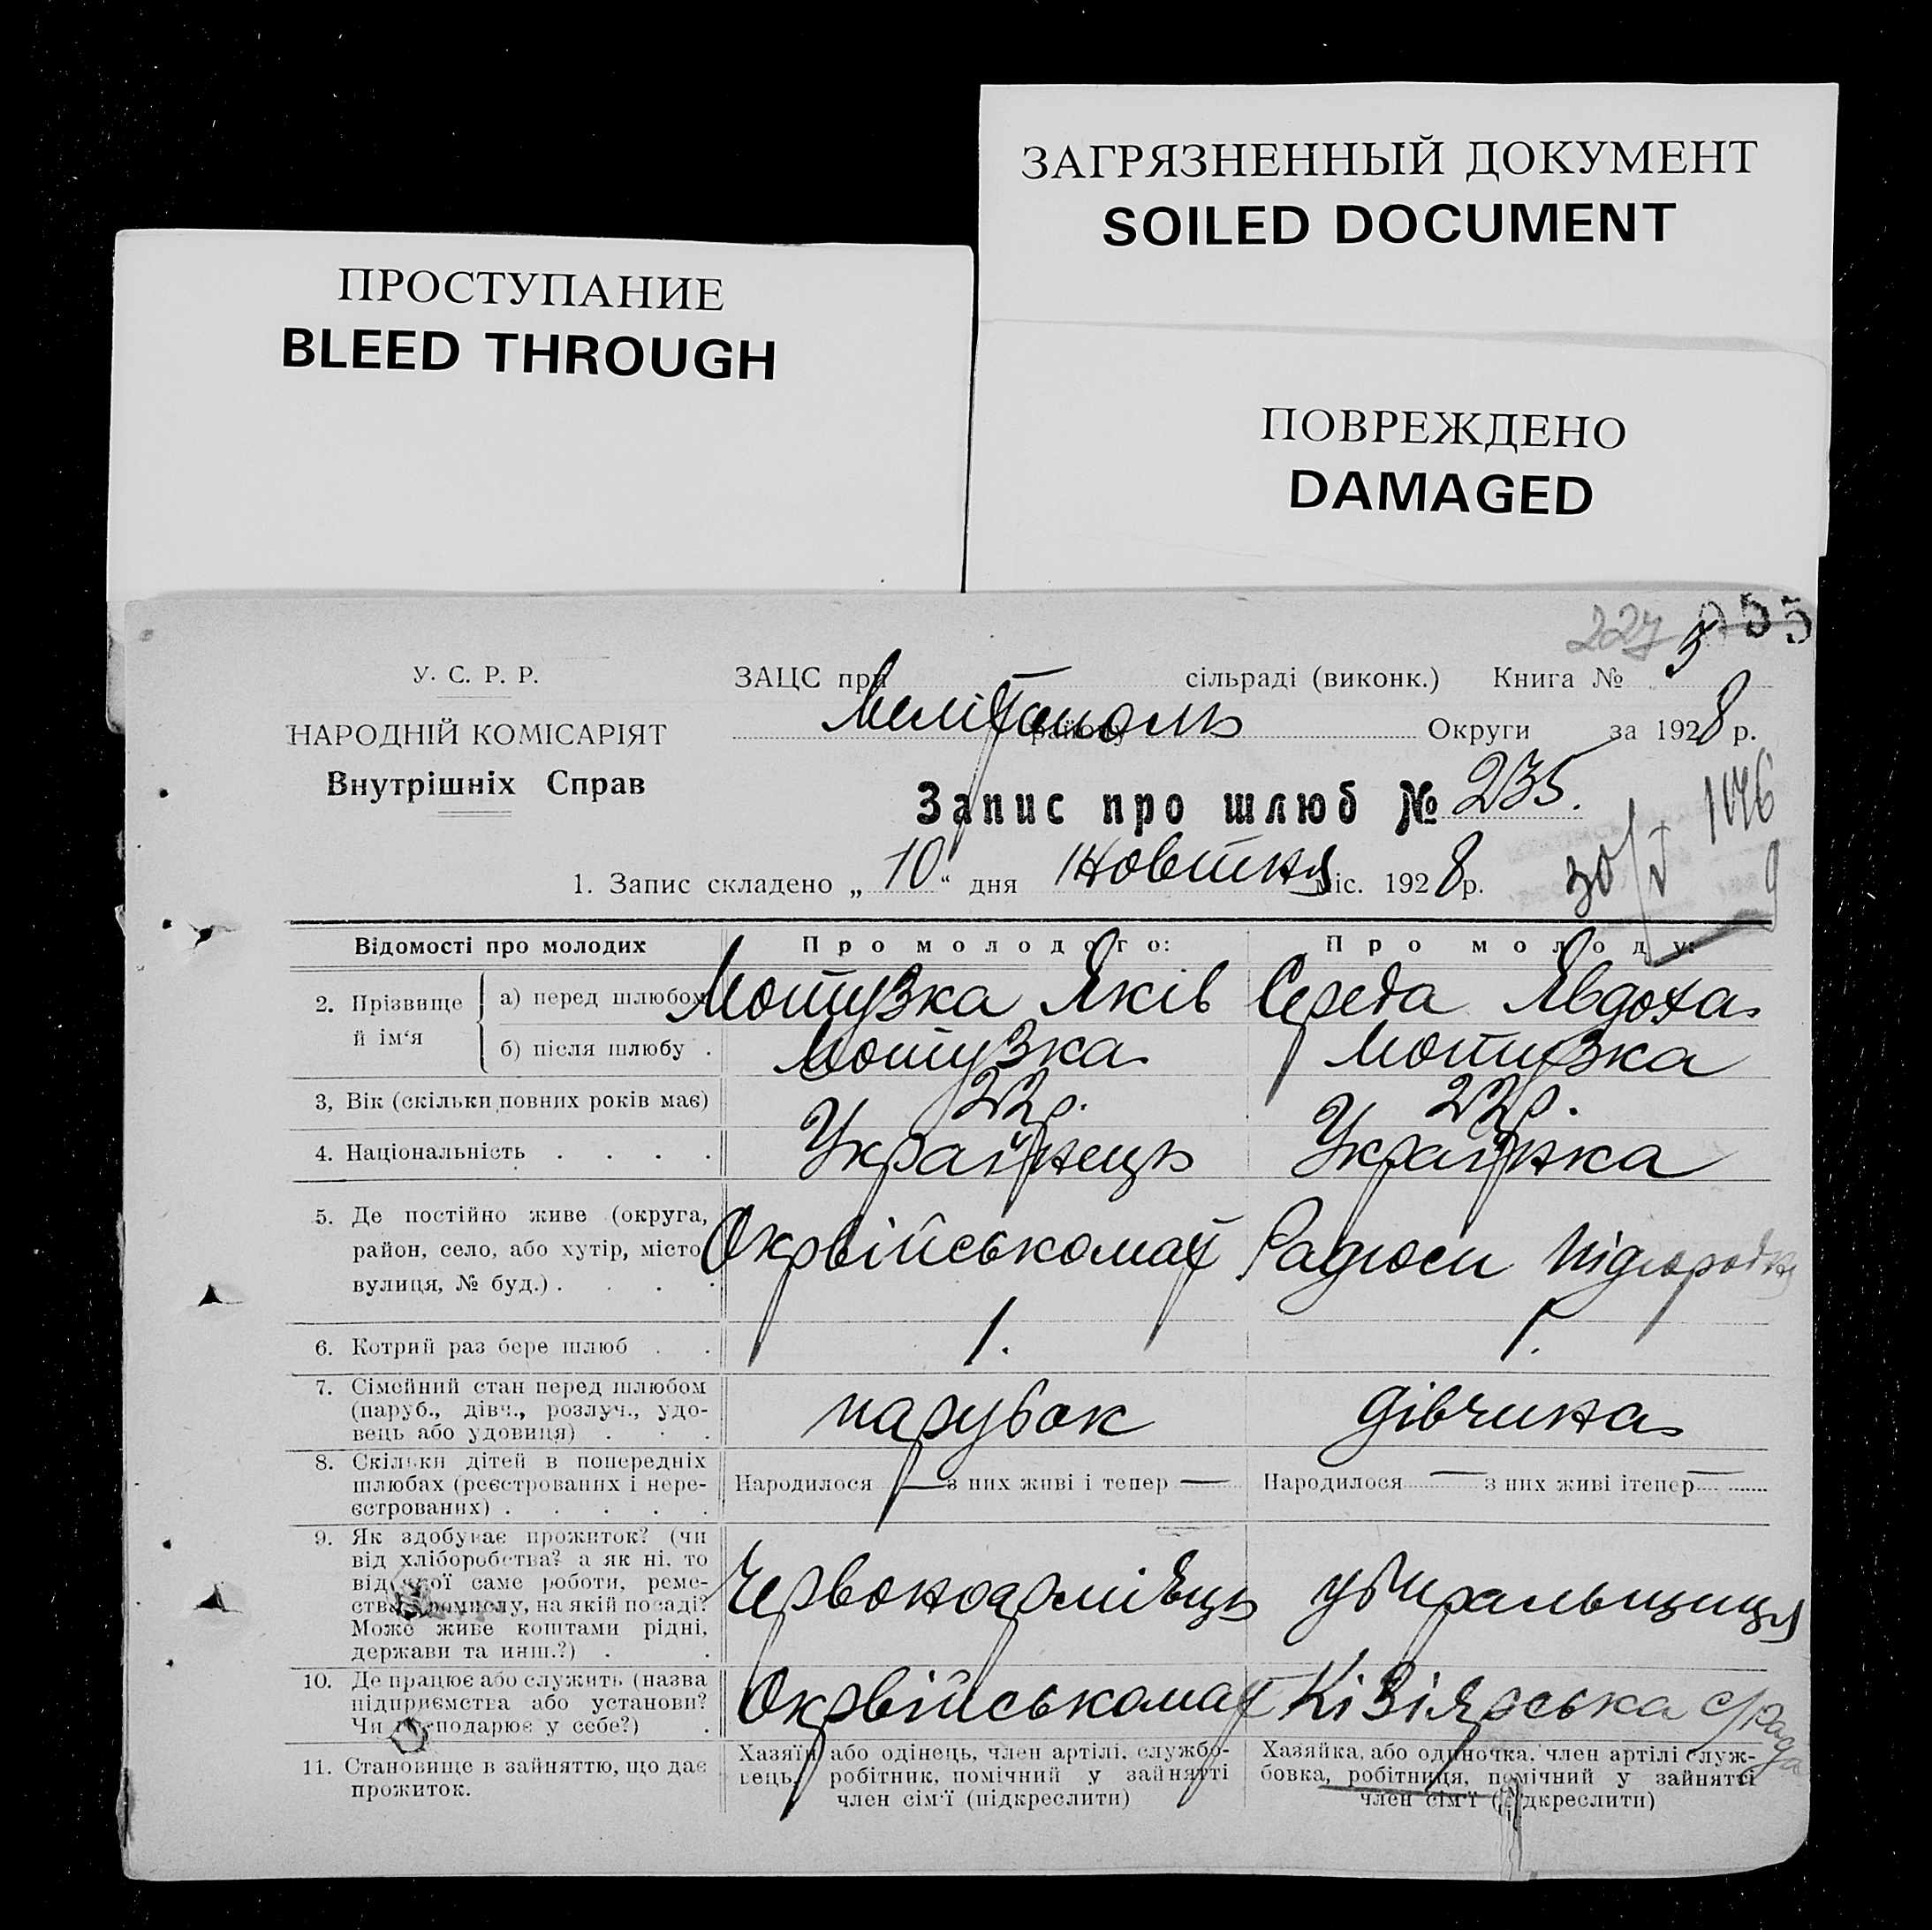 ЗАГРЯЗНЕННЫЙ ДОКУМЕНТ
SOILED DOCUMENT
ПРОСТУПАНИЕ
BLEED THROUGH
ПОВРЕЖДЕНО
DAMAGED
227 55
У. С. Р. Р.
НАРОДНІЙ КОМІСАРІЯТ
Внутрішніх Справ
ЗАЦС при сільраді (виконк.) Книга № 5
Мелітополь району Округи за 1928 р.
Запис про шлюб № 235.
1. Запис складено „10“ дня Жовтня міс. 1928 р.
30/V
Відомості про молодих
Про молодого:
Про молоду:
2. Прізвище й ім‘я
а) перед шлюбом Мотузка Яків Середа Явдоха
б) після шлюбу . Мотузка Мотузка
3, Вік (скільки повних років має) 22 р. 22 р.
4. Національність . . . . Українець Українка
5. Де постійно живе (округа,
район, село, або хутір, місто
вулиця, № буд.) . . . .
Окрвійськомат
Радгосп Підгородня
6. Котрий раз бере шлюб . . 1. 1.
7. Сімейний стан перед шлюбом
(паруб., дівч., розлуч., удо-
вець або удовиця) . . .
парубок
дівчина
8. Скільки дітей в попередніх
шлюбах (реєстрованих і нере-
єстрованих) . . . . .
Народилося — з них живі і тепер —
Народилося — з них живі ітепер —
9. Як здобуває прожиток? (чи
від хліборобства? а як ні, то
від якої саме роботи, реме-
ства, промислу, на якій посаді?
Може живе коштами рідні,
держави та инш.?) . .
Червоноармієць
убиральщиця
10. Де працює або служить (назва
підприємства або установи?
Чи господарює у себе?) .
Окрвійськомат
Кізіярська с/рада
11. Становище в зайняттю, що дає
прожиток.
Хазяїн або одінець, член артілі, службо-
вець, робітник, помічний у зайнятті
член сім‘ї (підкреслити)
Хазяйка, або одиночка, член артілі служ-
бовка, робітниця, помічний у зайнятті
член сім‘ї (підкреслити)